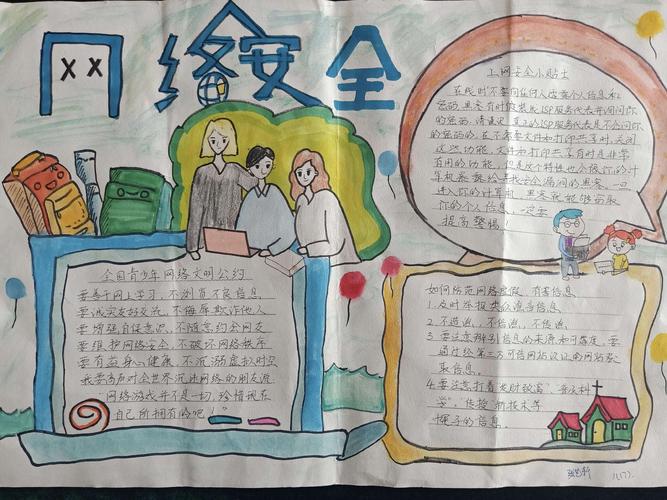 网络安全
上网安全小贴士
在线时不要向任何人应答个人信息和
密码。黑客有时假装成ISP服务代表并询问你
的密码。请谨记:真正的ISP服务代表是不会问你
的密码的。在不需要文件和打印共享时,关闭
这些功能。文件和打印共享有时是非常
有用的功能,但是这个特性也会将你的计
算机暴露给寻找安全漏洞的黑客。一旦
进入你的计算机,黑客就能够窃取
你的个人信息。一定要
提高警惕!
全国青少年网络文明公约
要善于网上学习,不浏览不良信息
要诚实友好交流,不侮辱欺诈他人
要增强自保意识,不随意约会网友
要维护网络安全,不破坏网络秩序
要有益身心健康,不沉溺虚拟时空
我要高声对全世界沉迷网络的朋友说
“网络游戏并不是一切,珍惜现在
自己所拥有的吧!”
如何防范网络虚假、有害信息
1.及时举报类似谣言信息
2.不造谣,不信谣,不传谣
3.要注意辨别信息的来源和可靠度,要
通过经第三方可信网站认证的网站获
取信息。
4.要注意打着“发财致富”、“普及科
学”、传授“新技术”等
幌子的信息。